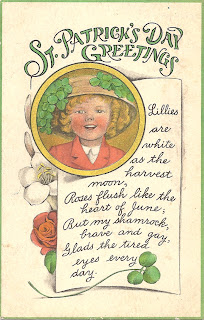 ST. PATRICK'S DAY
GREETINGS
Lillies
are
white
as the
harvest
moon,
Roses flush like the
heart of June;
But my shamrock,
brave and gay,
Glads the tired
eyes every
day.